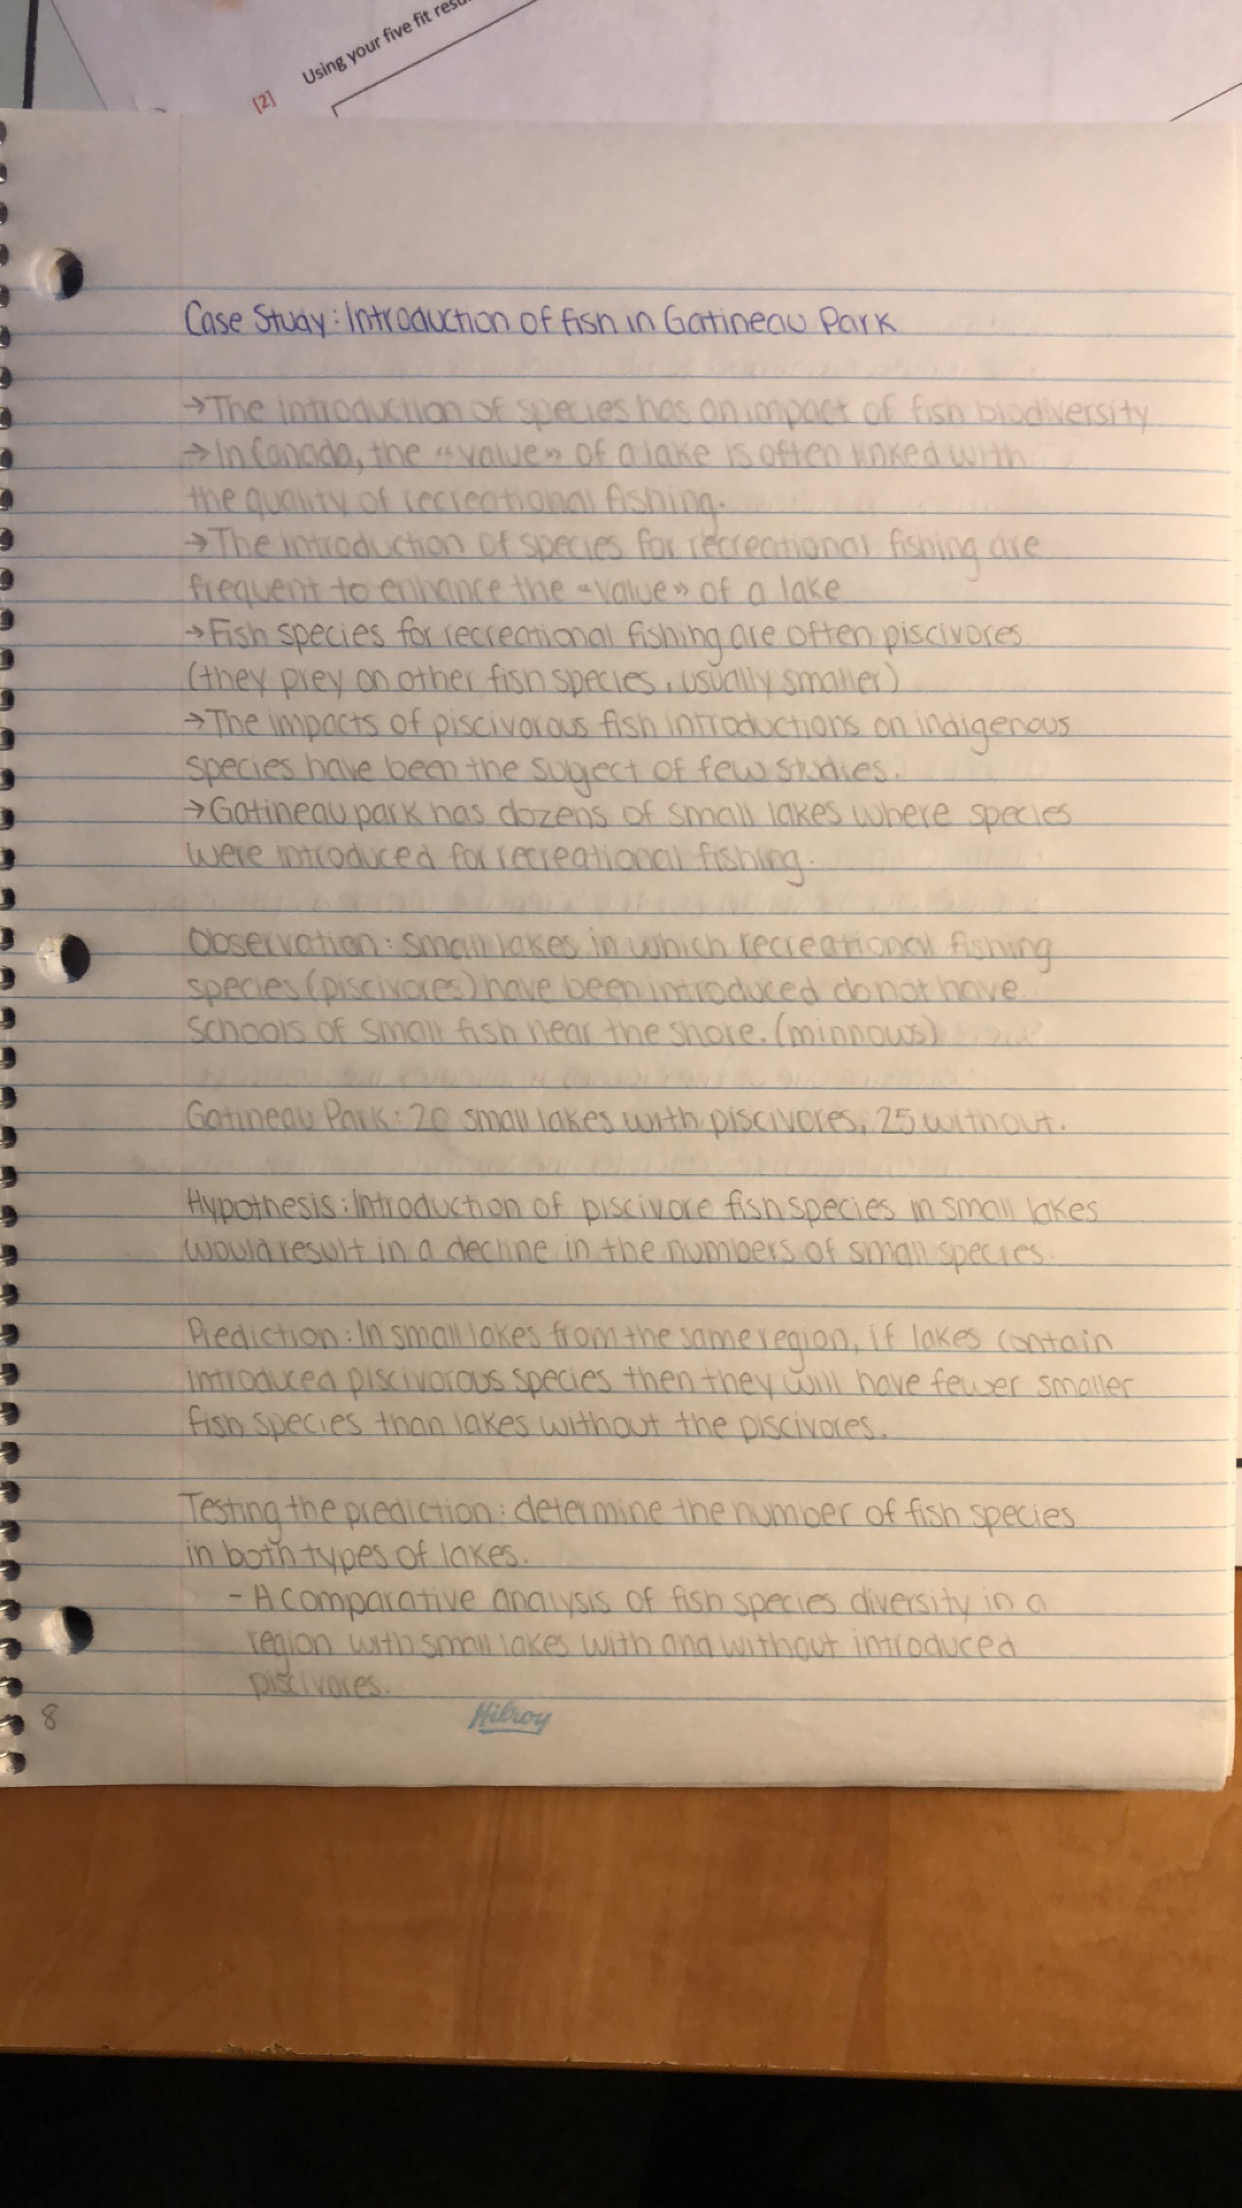 Using your five fit resu
[2]
Case Study: Introduction of fish in Gatineau Park
→The introduction of species has an impact of fish biodiversity
→In Canada, the "value" of a lake is often linked with
the quality of recreational fishing.
→The introduction of species for recreational fishing are
frequent to enhance the "value" of a lake
→Fish species for recreational fishing are often piscivores
(they prey on other fish species, usually smaller)
→The impacts of piscivorous fish introductions on indigenous
species have been the sugject of few studies.
→Gatineau park has dozens of small lakes where species
were introduced for recreational fishing.
Observation: small lakes in which recreational fishing
species (piscivores) have been introduced do not have
schools of small fish near the shore. (minnows)
Gatineau Park: 20 small lakes with piscivores, 25 without.
Hypothesis: Introduction of piscivore fish species in small lakes
would result in a decline in the numbers of small species.
Prediction: In small lakes from the same region, if lakes contain
introduced piscivorous species then they will have fewer smaller
fish species than lakes without the piscivores.
Testing the prediction: determine the number of fish species
in both types of lakes.
- A comparative analysis of fish species diversity in a
region with small lakes with and without introduced
piscivores.
8
Hilroy